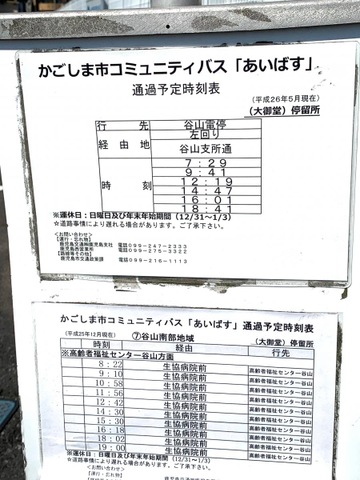 かごしま市コミュニティバス「あいばす」
通過予定時刻表
(平成26年5月現在)
(大御堂)停留所
行先 谷山電停
左回り
経由地 谷山支所通
時刻 7:29
9:41
12:19
14:47
16:01
18:41
※運休日:日曜日及び年末年始期間(12/31~1/3)
☆道路事情により遅れる場合があります。ご了承下さい。
<お問い合わせ>
【運行・忘れ物】
鹿児島交通㈱鹿児島支社 電話099-247-2333
鹿児島営業所 電話099-275-3322
【路線等その他】
鹿児島市交通政策課 電話099-216-1113
かごしま市コミュニティバス「あいばす」通過予定時刻表
(平成25年12月現在) ⑦谷山南部地域 (大御堂)停留所
時刻 経由 行先
※高齢者福祉センター谷山方面
8:22 生協病院前 高齢者福祉センター谷山
9:10 生協病院前 高齢者福祉センター谷山
10:58 生協病院前 高齢者福祉センター谷山
11:56 生協病院前 高齢者福祉センター谷山
12:42 生協病院前 高齢者福祉センター谷山
14:30 生協病院前 高齢者福祉センター谷山
15:30 生協病院前 高齢者福祉センター谷山
16:18 生協病院前 高齢者福祉センター谷山
18:02 生協病院前 高齢者福祉センター谷山
19:00 生協病院前 高齢者福祉センター谷山
※運休日:日曜日及び年末年始期間(12/31~1/3)
☆道路事情により遅れる場合があります。ご了承下さい。
<お問い合わせ>
【運行・忘れ物】